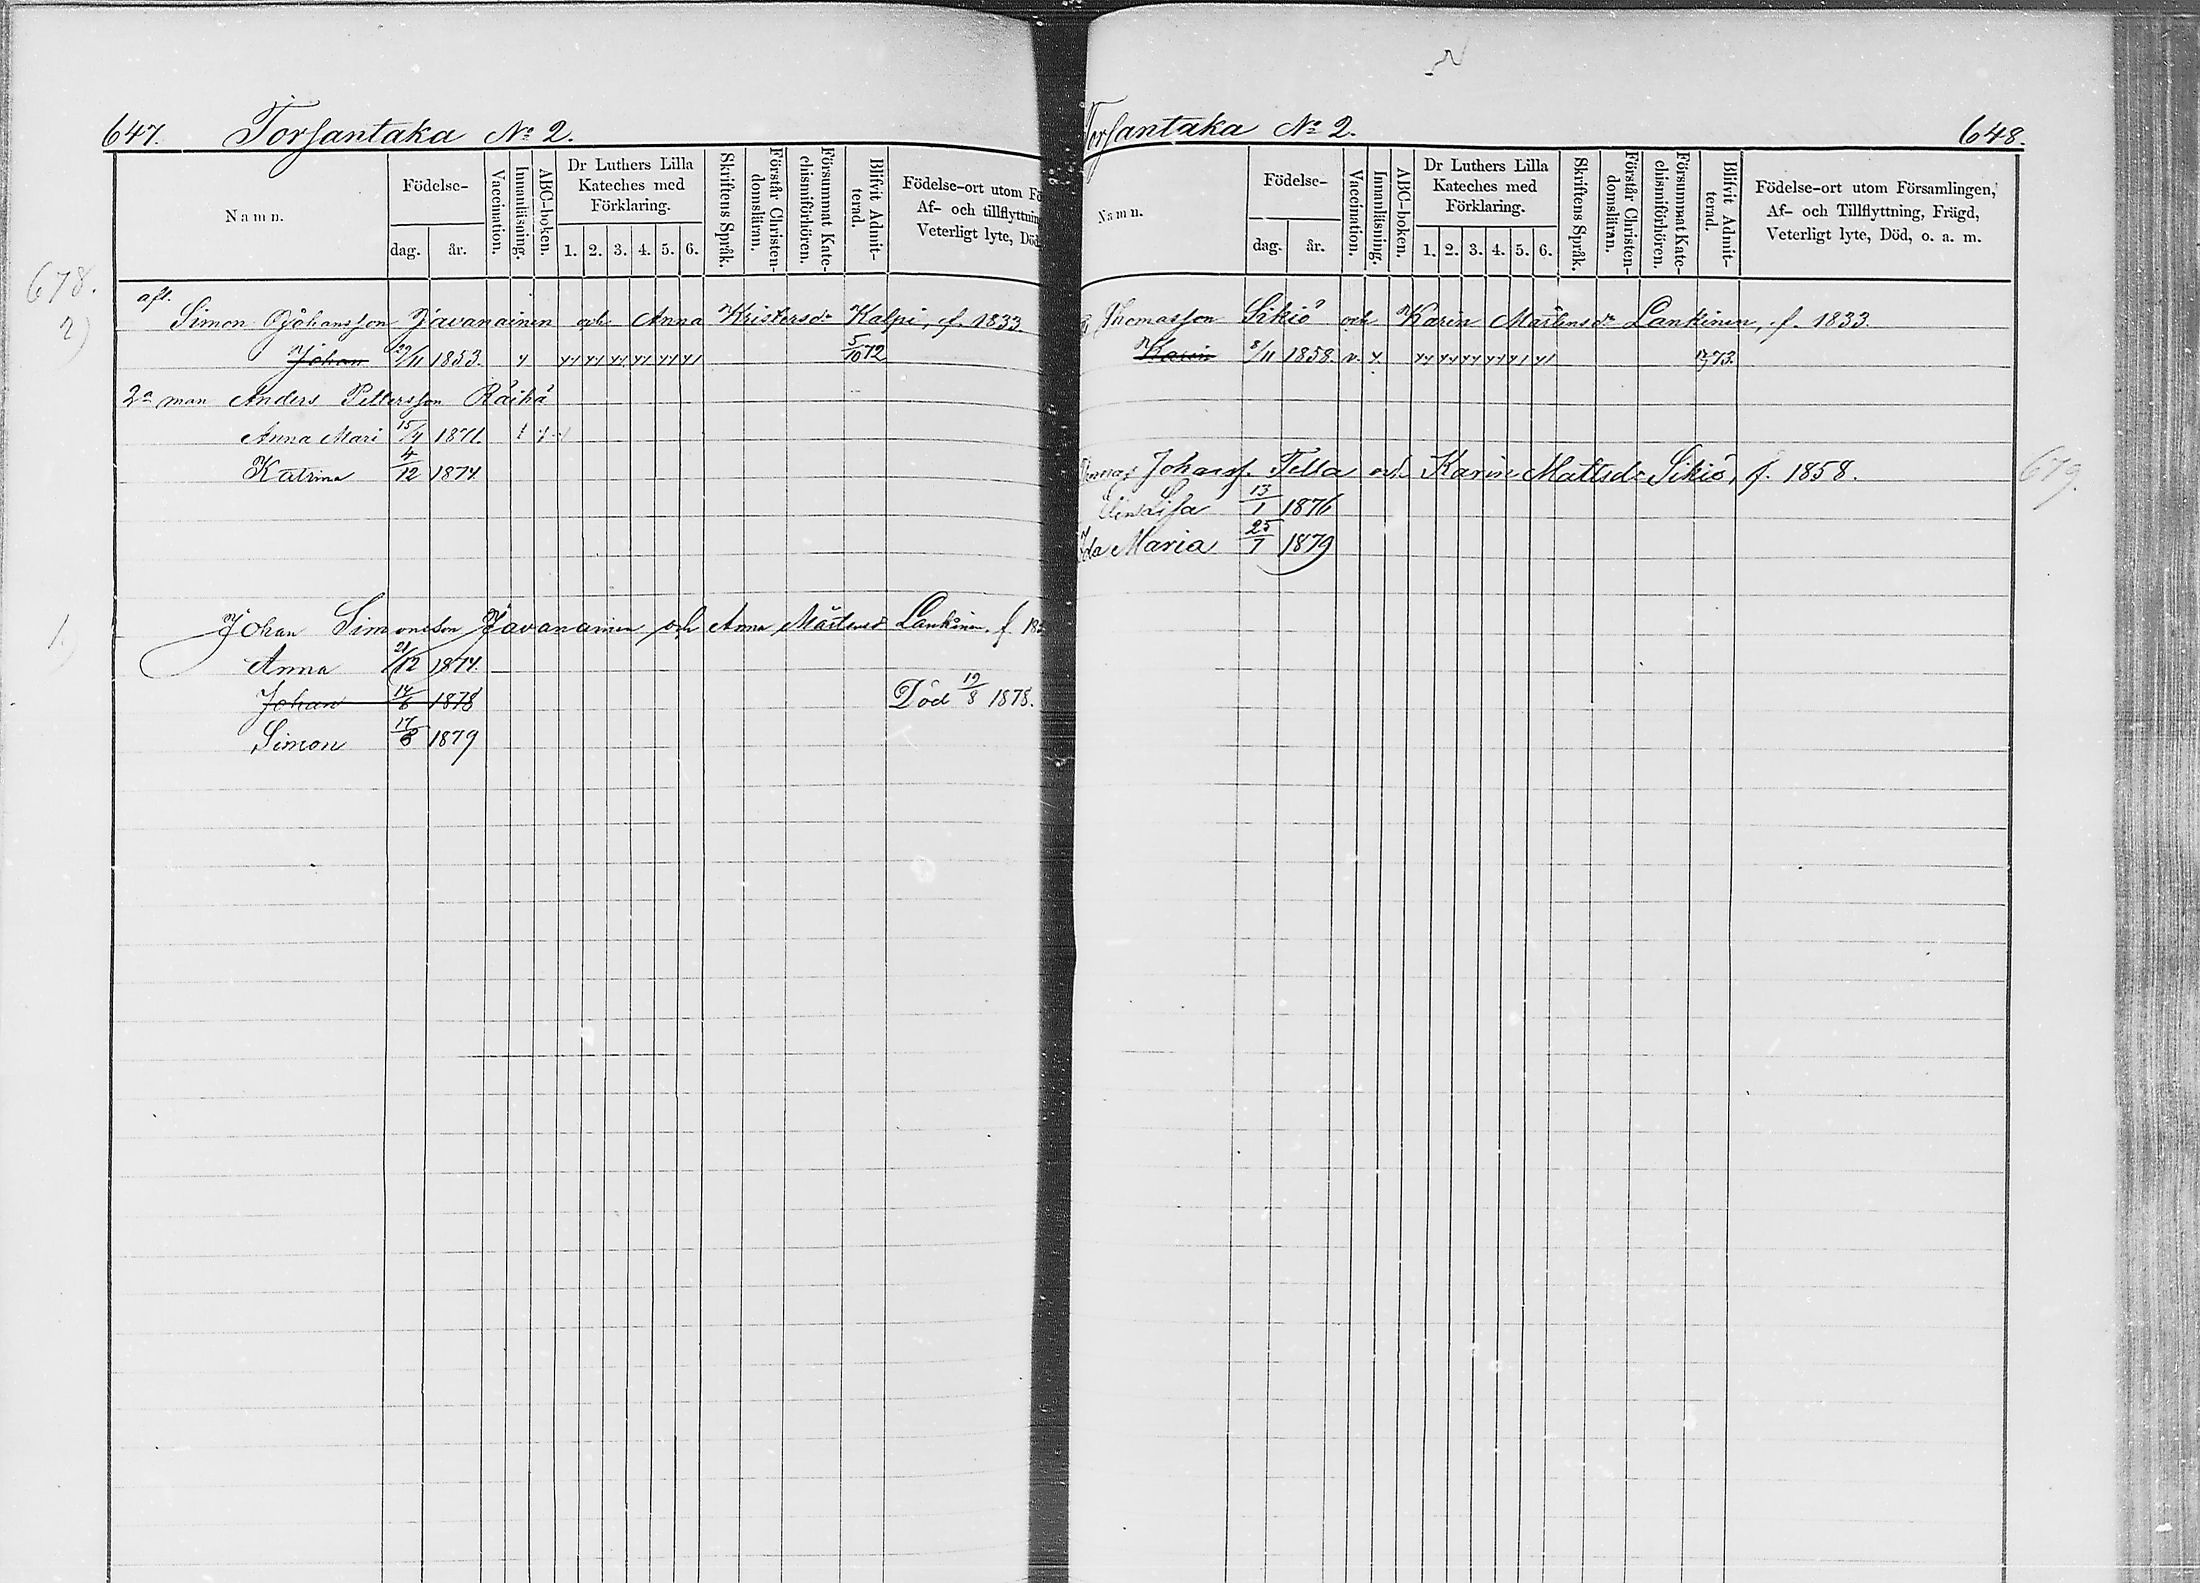 647. Torsantaka No 2.
Namn.
Födelse-
dag. år.
Vaccination.
Innanläsning.
ABC-boken.
Dr Luthers Lilla
Kateches med
Förklaring.
1. 2. 3. 4. 5. 6.
Skriftens Språk.
Förstår Christen-
domsläran.
Försummat Kate-
chismiförhören.
Blifvit Admit-
terad.
Födelse-ort utom Fö
Af- och tillflyttnin
Veterligt lyte, Död
678.
2)
afl.
Simon Johansson Javanainen och Anna Kristersdr Kalpi, f. 1833
Johan 29/11 1853. 5/10 72
2a man Anders Pettersson Räihä
Anna Mari 15/4 1871.
Katrina 4/12 1874
1)
Johan Simonsson Javanainen och Anna Mårtensd Lankinen, f. 185
Anna 21/12 1874.
Johan 14/6 1878 Död 19/8 1878.
Simon 17/8 1879
Torsantaka No 2. 648.
Namn.
Födelse-
dag. år.
Vaccination.
Innanläsning.
ABC-boken.
Dr Luthers Lilla
Kateches med
Förklaring.
1. 2. 3. 4. 5. 6.
Skriftens Språk.
Förstår Christen-
domsläran.
Försummat Kate-
chismiförhören.
Blifvit Admit-
terad.
Födelse-ort utom Församlingen,
Af- och Tillflyttning, Frägd,
Veterligt lyte, Död, o. a. m.
Thomasson Sikiö och Karin Mårtensdr Lankinen, f. 1833.
Karin 8/11 1858. v. 73.
Johansf. Tella och Karin Mattsdr Sikiö, f. 1858.
679.
Lisa 13/1 1876
Ida Maria 25/7 1879